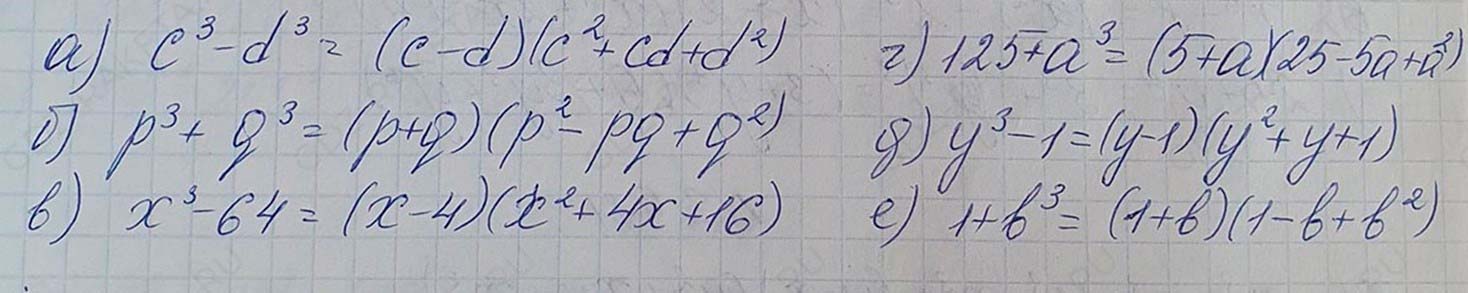 а) c³-d³ = (c-d)(c²+cd+d²)
б) p³+q³ = (p+q)(p²-pq+q²)
в) x³-64 = (x-4)(x²+4x+16)
г) 125+a³ = (5+a)(25-5a+a²)
д) y³-1 = (y-1)(y²+y+1)
е) 1+b³ = (1+b)(1-b+b²)